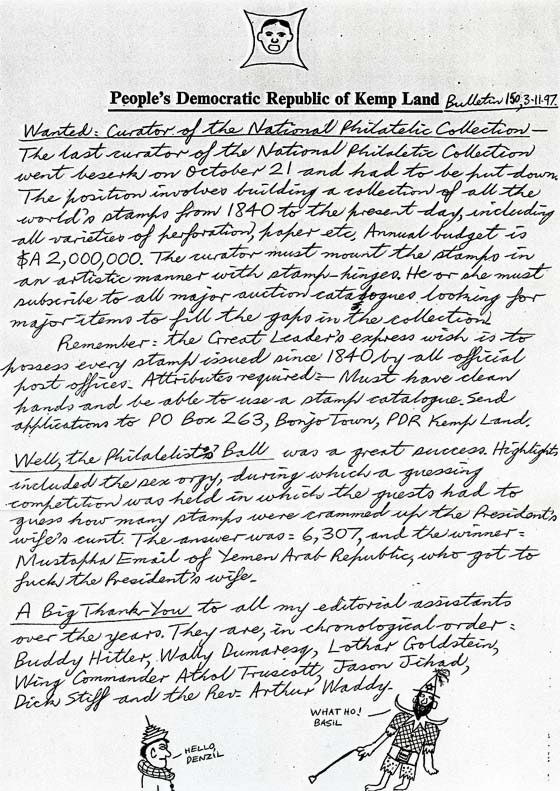 People's Democratic Republic of Kemp Land Bulletin 150, 3-11-97.
Wanted: Curator of the National Philatelic Collection —
The last curator of the National Philaletic Collection
went beserk on October 21 and had to be put down.
The position involves building a collection of all the
world's stamps from 1840 to the present day, including
all varieties of perforation, paper etc. Annual budget is
$A 2,000,000. The curator must mount the stamps in
an artistic manner with stamp-hinges. He or she must
subscribe to all major auction catalogues looking for
major items to fill the gaps in the collection.
Remember: the Great Leader's express wish is to
possess every stamp issued since 1840 by all official
post offices. Attributes required:- Must have clean
hands and be able to use a stamp catalogue. Send
applications to PO Box 263, Bonjo Town, PDR Kemp Land.
Well, the Philatelists' Ball was a great success. Highlights
included the sex orgy, during which a guessing
competition was held in which the guests had to
guess how many stamps were crammed up the President's
wife's cunt. The answer was: 6,307, and the winner:
Mustapha Email of Yemen Arab Republic, who got to
fuck the President's wife.
A Big Thank-You to all my editorial assistants
over the years. They are, in chronological order:
Buddy Hitler, Wally Dumaresq, Lothar Goldstein,
Wing Commander Athol Truscott, Jason Jihad,
Dick Stiff and the Rev. Arthur Waddy.
HELLO,
DENZIL
WHAT HO!
BASIL